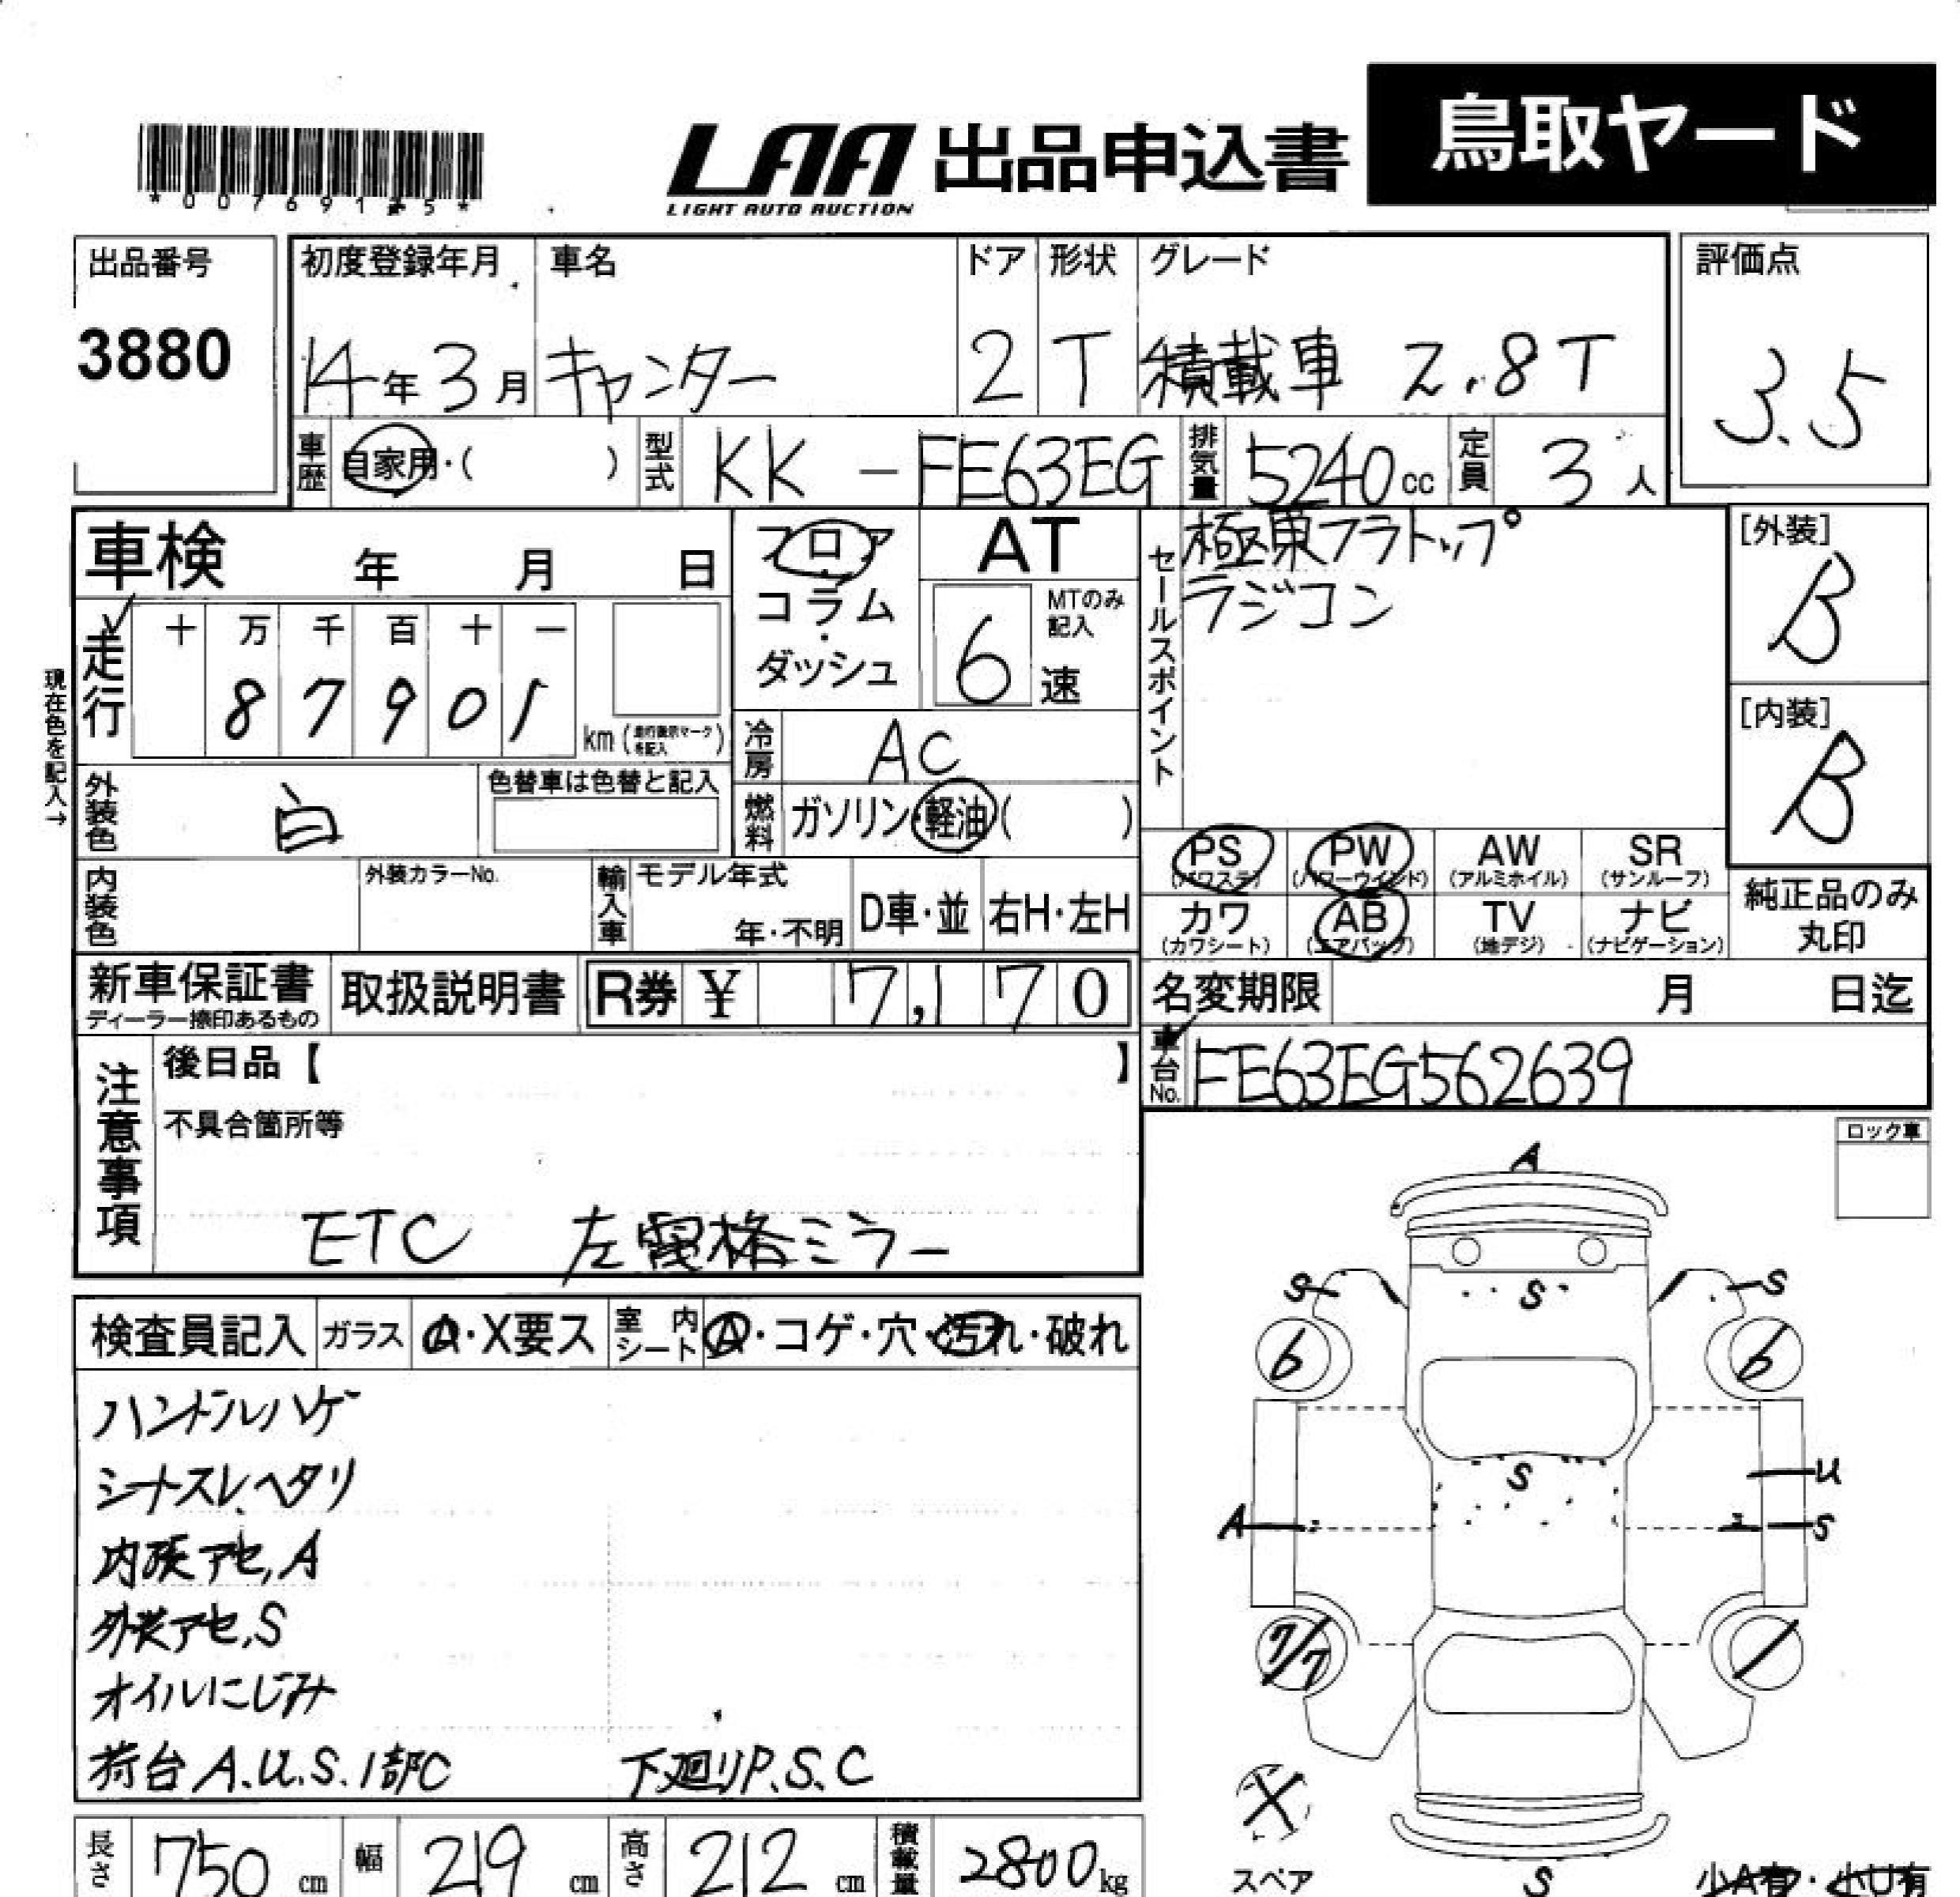 *00769125*
LAA 出品申込書 鳥取ヤード
LIGHT AUTO AUCTION
出品番号 初度登録年月 車名 ドア 形状 グレード 評価点
3880 14年3月 キャンター 2 T 積載車 2.8T 3.5
車歴 自家用・( ) 型式 KK-FE63EG 排気量 5240cc 定員 3人
車検 年 月 日 フロア・コラム・ダッシュ AT セールスポイント 極東フラトップ [外装]
6速 MTのみ記入 ラジコン B
現在色を記入→ 走行 十 万 千 百 十 一
8 7 9 0 1 km (走行表示マークを記入) [内装]
冷房 AC B
外装色 白 色替車は色替と記入 燃料 ガソリン・軽油( )
PS (パワステ) PW (パワーウインド) AW (アルミホイル) SR (サンルーフ)
内装色 外装カラーNo. 輸入車 モデル年式 年・不明 D車・並 右H・左H
カワ (カワシート) AB (エアバッグ) TV (地デジ) ナビ (ナビゲーション) 純正品のみ丸印
新車保証書 ディーラー捺印あるもの 取扱説明書 R券 ¥ 7,170 名変期限 月 日迄
車台No. FE63EG562639
注意事項 後日品【 】
不具合箇所等
ETC 左電格ミラー
ロック車
検査員記入 ガラス A・X要ス 室内シート A・コゲ・穴・汚れ・破れ
ハンドルハゲ
シートスレ、ヘタリ
内張アセ,A
外装アセ,S
オイルにじみ
荷台A.U.S.1部C 下廻りP.S.C
A
S S S
6 6
S U
A S
7/7
スペア
S
小A有・小U有
長さ 750cm 幅 219cm 高さ 212cm 積載量 2800kg